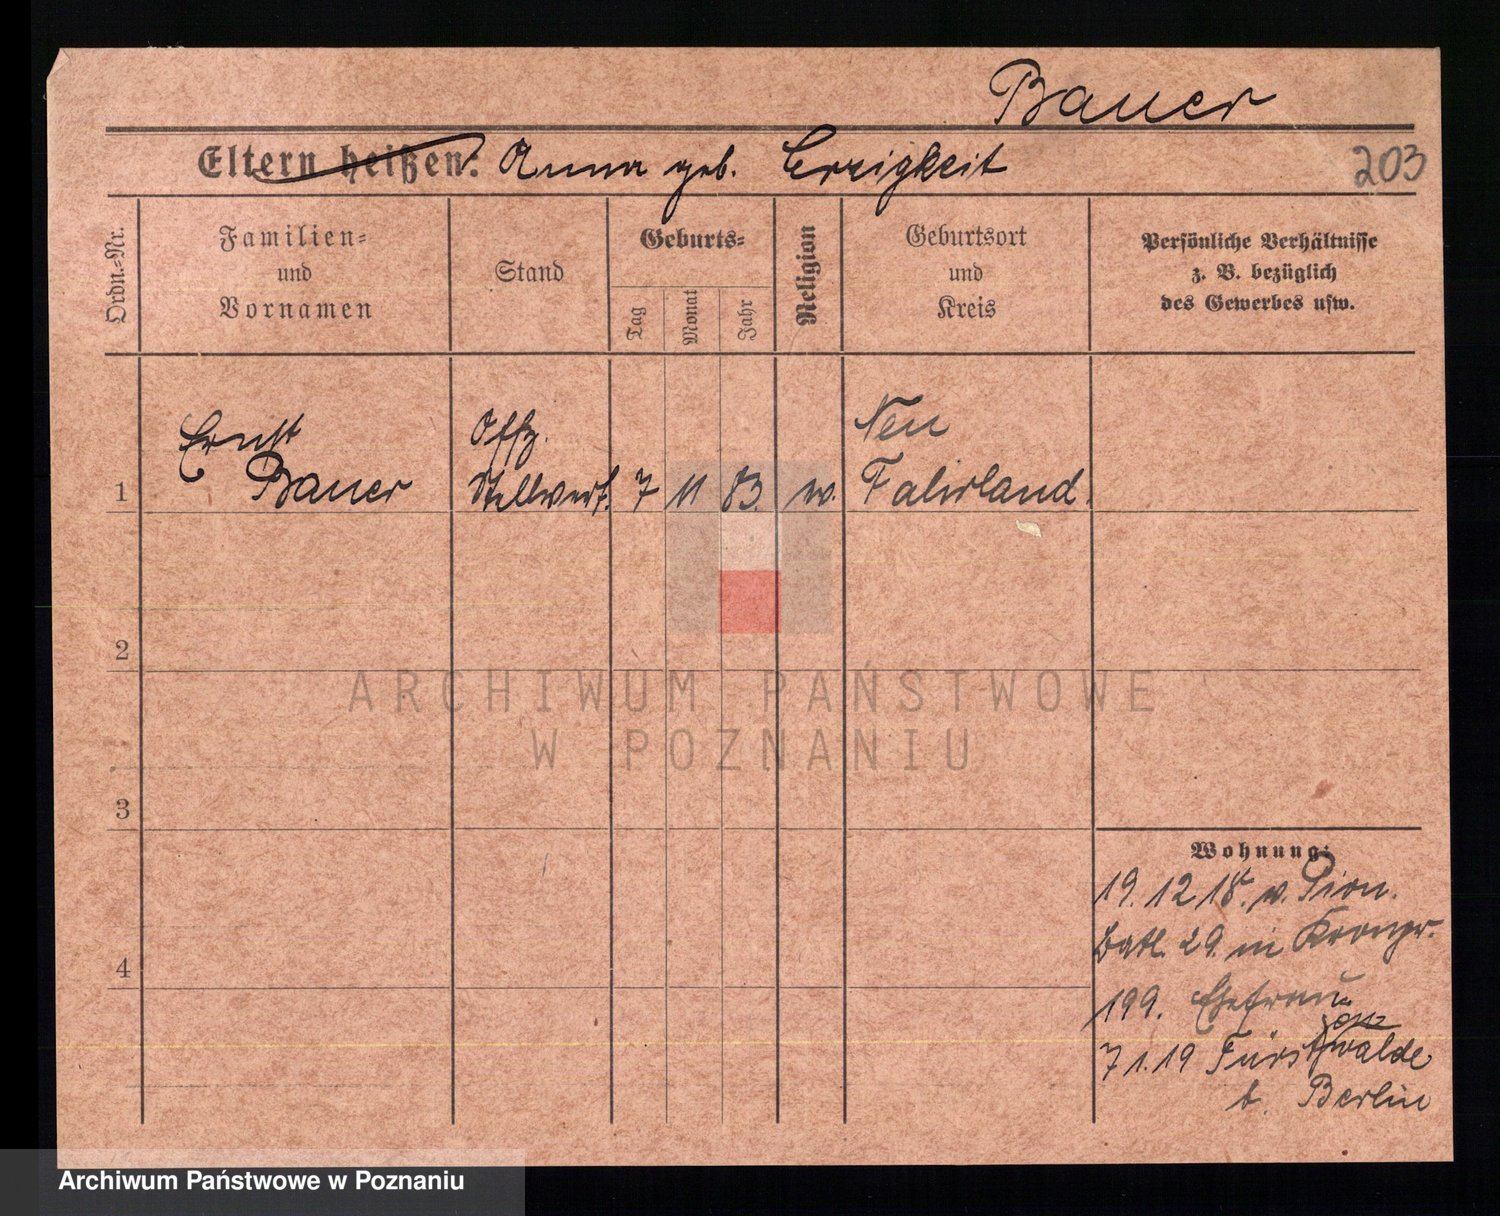 Bauer
Eltern heißen: Anna geb. Errigkeit
203
Ordn.-Nr.
Familien-
und
Vornamen
Stand
Geburts-
Tag
Monat
Jahr
Religion
Geburtsort
und
Kreis
Persönliche Verhältnisse
z. B. bezüglich
des Gewerbes usw.
Ernst
Offz.
Neu
1 Bauer Stellvert. 7 11 83. w. Fahrland.
2
3
4
Wohnung:
19. 12 18. v. Pion.
Batl. 29. in Kronpr.
199. Ehefrau
7 1. 19 Fürstenwalde
b. Berlin
ARCHIWUM PAŃSTWOWE
W POZNANIU
Archiwum Państwowe w Poznaniu